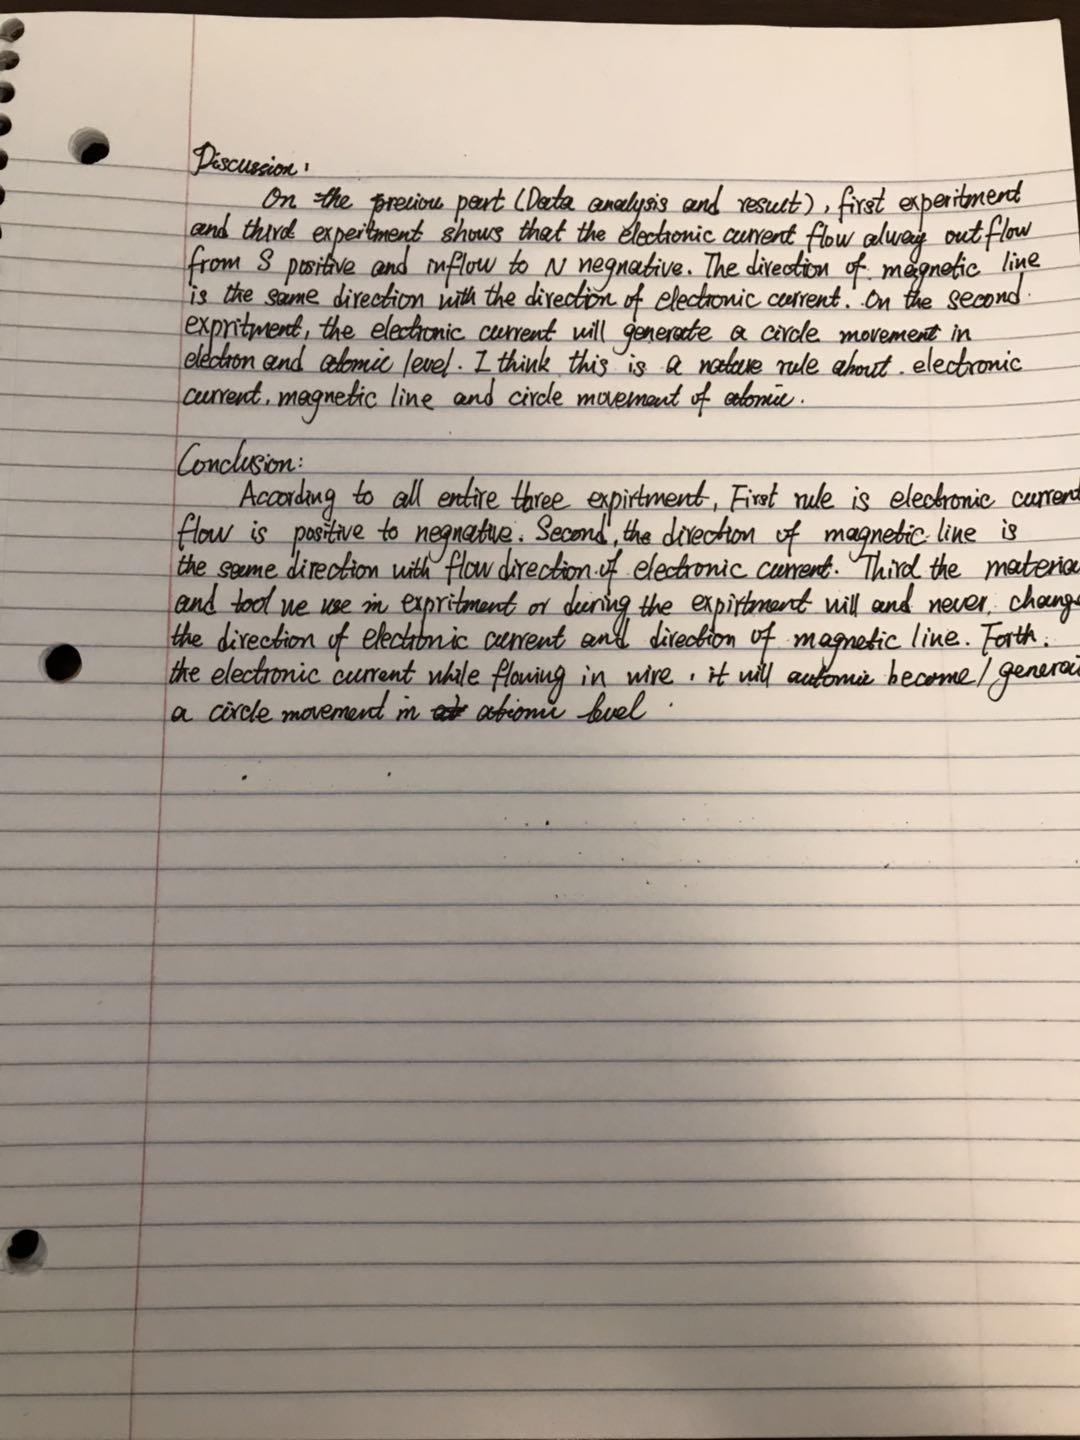 Discussion:
On the precious part (Data analysis and result), first experitment
and third experitment shows that the electronic current flow alway outflow
from S positive and inflow to N negnative. The direction of magnetic line
is the same direction with the direction of electronic current. On the second
expritment, the electronic current will generate a circle movement in
electron and atomic level. I think this is a nature rule about electronic
current, magnetic line and circle movement of atomic.
Conclusion:
According to all entire three expirtment, First rule is electronic current
flow is positive to negnative. Second, the direction of magnetic line is
the same direction with flow direction of electronic current. Third the materia
and tool we use in expritment or during the expirtment will and never change
the direction of electronic current and direction of magnetic line. Forth.
the electronic current while flowing in wire, it will automic become/generat
a circle movement in atiomic level.